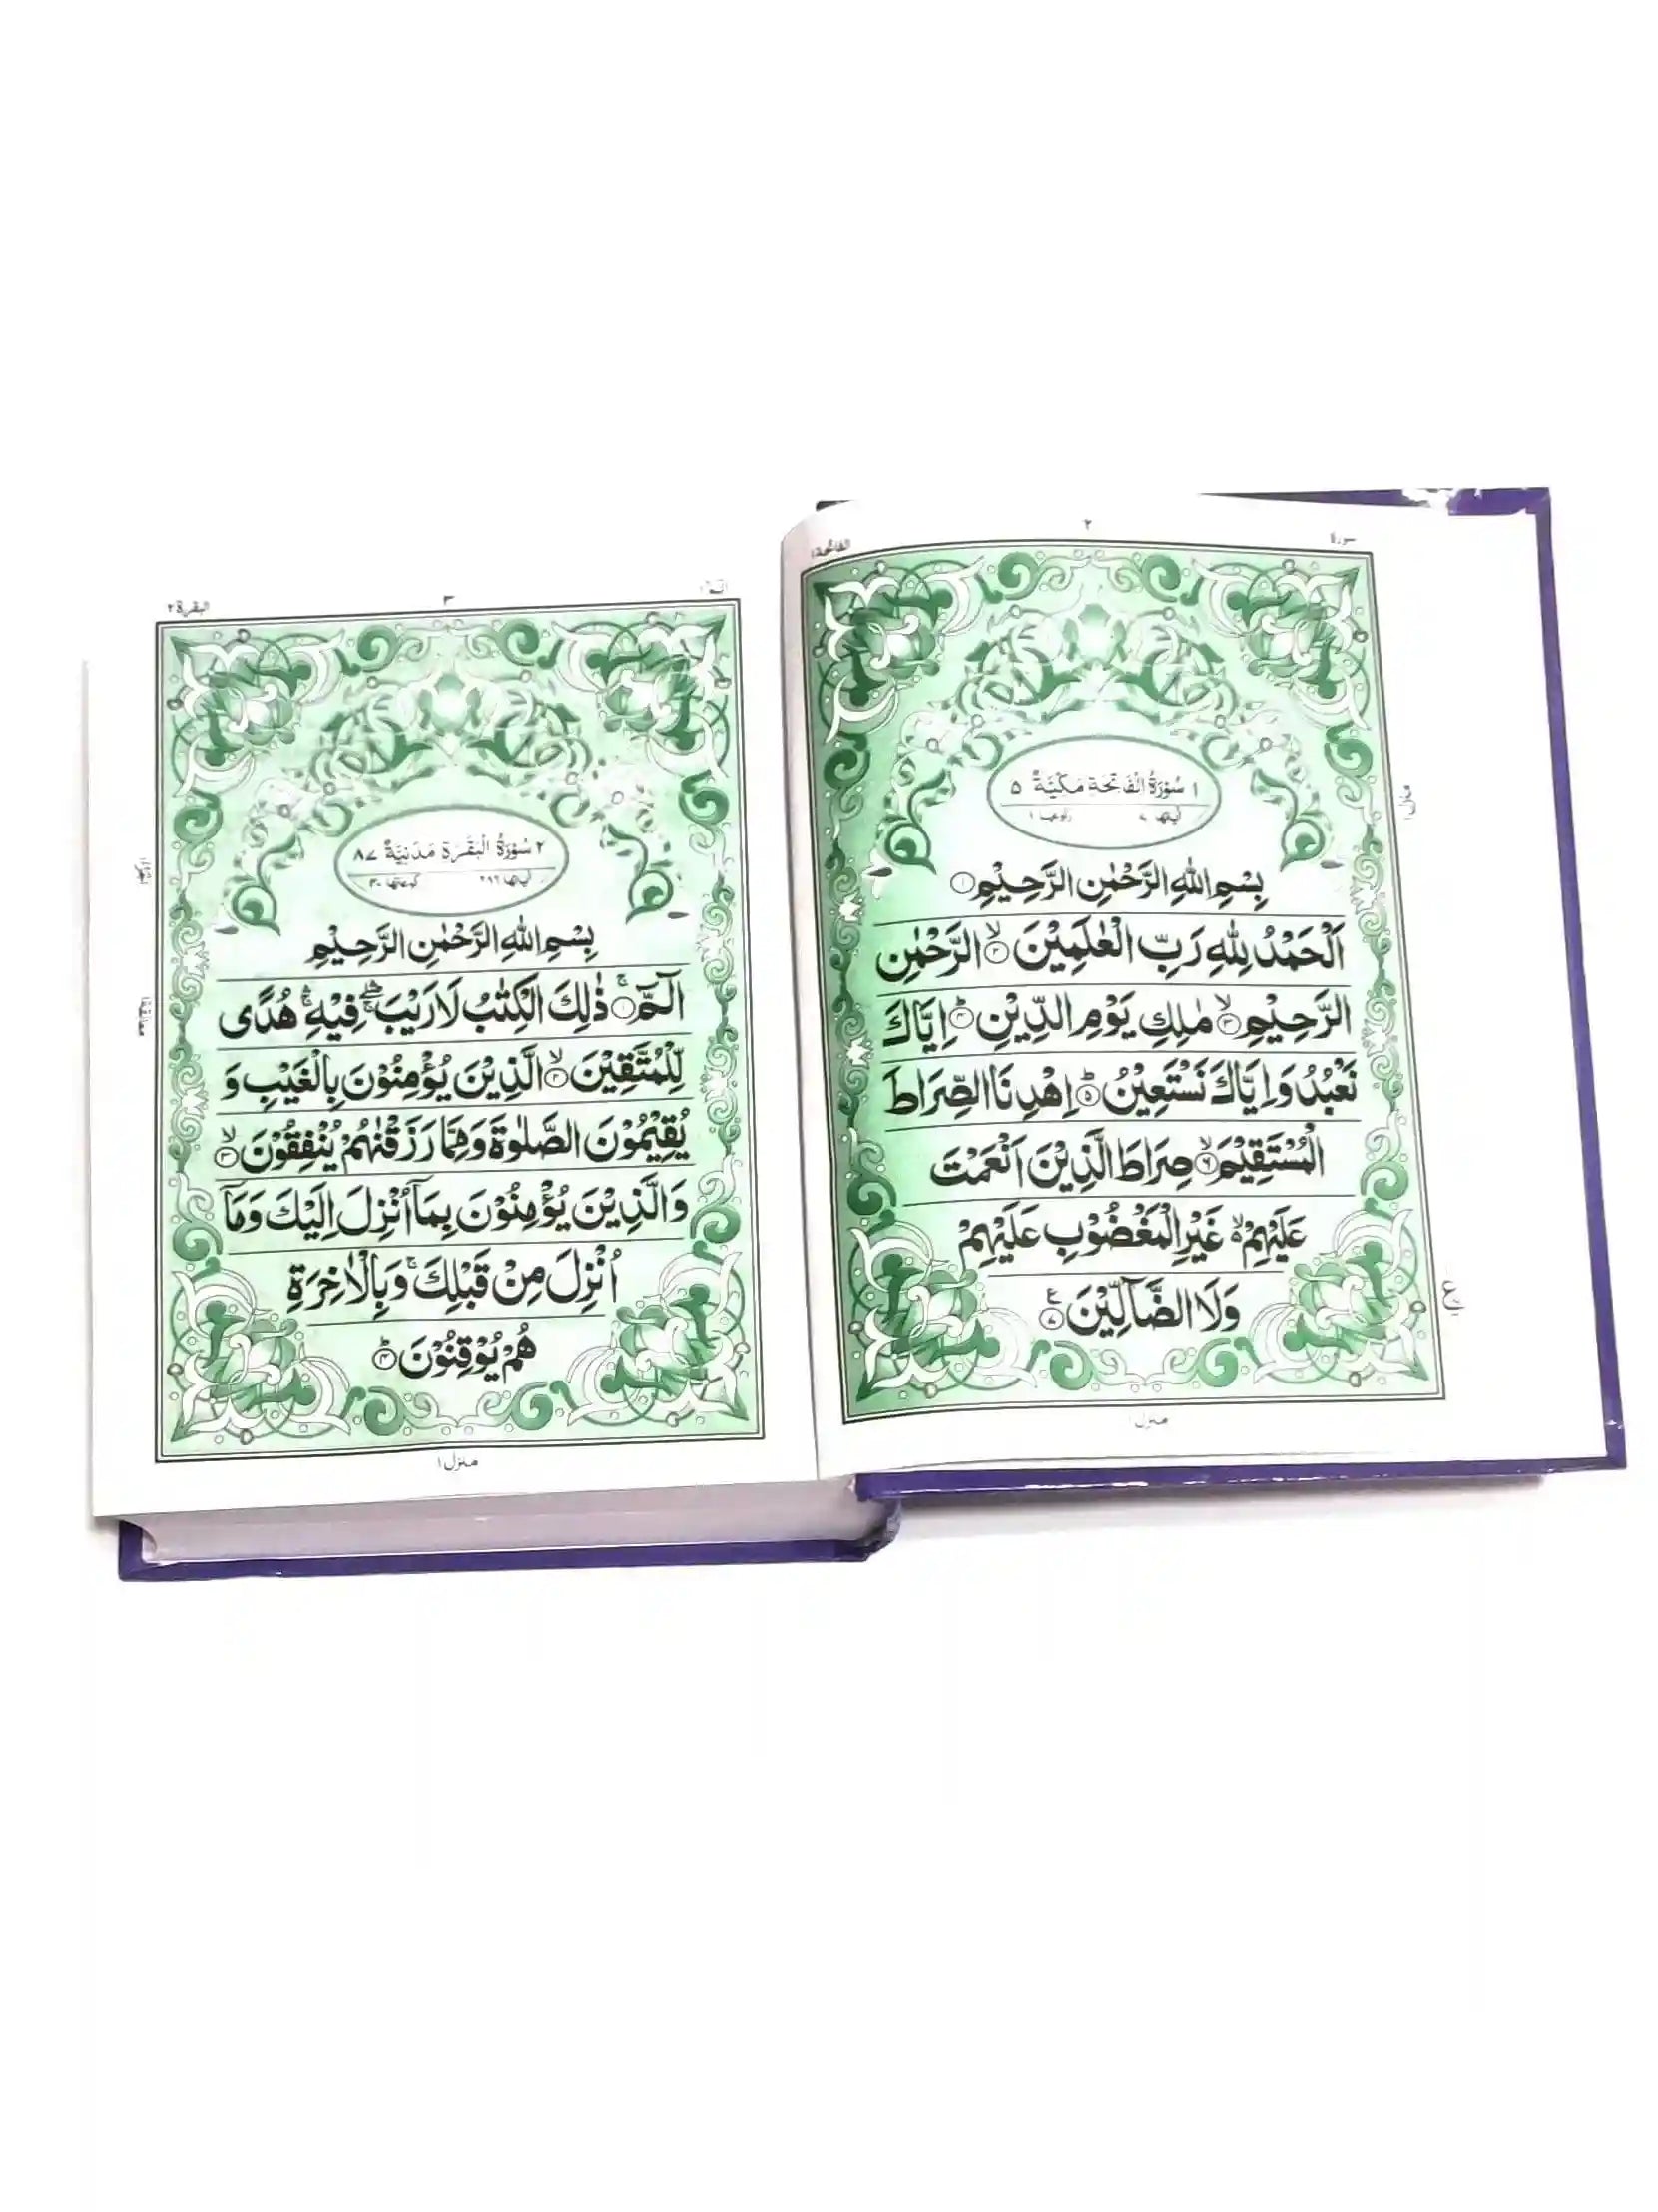 سورة
٢
الفاتحة ١
١ سُوْرَةُ الْفَاتِحَةِ مَكِّيَّةٌ ٥
اٰیاتها ٧ رکوعها ١
بِسْمِ اللّٰهِ الرَّحْمٰنِ الرَّحِیْمِ ۝١
اَلْحَمْدُ لِلّٰهِ رَبِّ الْعٰلَمِیْنَ ۙ۝٢ الرَّحْمٰنِ
الرَّحِیْمِ ۙ۝٣ مٰلِكِ یَوْمِ الدِّیْنِ ؕ۝٤ اِیَّاكَ
نَعْبُدُ وَ اِیَّاكَ نَسْتَعِیْنُ ؕ۝٥ اِهْدِنَا الصِّرَاطَ
الْمُسْتَقِیْمَ ۙ۝٦ صِرَاطَ الَّذِیْنَ اَنْعَمْتَ
عَلَیْهِمْ ۙ۬ غَیْرِ الْمَغْضُوْبِ عَلَیْهِمْ
وَلَا الضَّآلِّیْنَ ۠۝٧
ع
منزل ١
٣
البقرة ٢
٢ سُوْرَةُ الْبَقَرَةِ مَدَنِيَّةٌ ٨٧
اٰیاتها ٢٨٦
بِسْمِ اللّٰهِ الرَّحْمٰنِ الرَّحِیْمِ
الٓمّٓ ۚ۝١ ذٰلِكَ الْكِتٰبُ لَا رَیْبَ ۖۛۚ فِیْهِ ۚۛ هُدًی
لِّلْمُتَّقِیْنَ ۙ۝٢ الَّذِیْنَ یُؤْمِنُوْنَ بِالْغَیْبِ وَ
یُقِیْمُوْنَ الصَّلٰوةَ وَمِمَّا رَزَقْنٰهُمْ یُنْفِقُوْنَ ۙ۝٣
وَالَّذِیْنَ یُؤْمِنُوْنَ بِمَاۤ اُنْزِلَ اِلَیْكَ وَمَاۤ
اُنْزِلَ مِنْ قَبْلِكَ ۚ وَبِالْاٰخِرَةِ
هُمْ یُوْقِنُوْنَ ؕ۝٤
معانقة
منزل ١